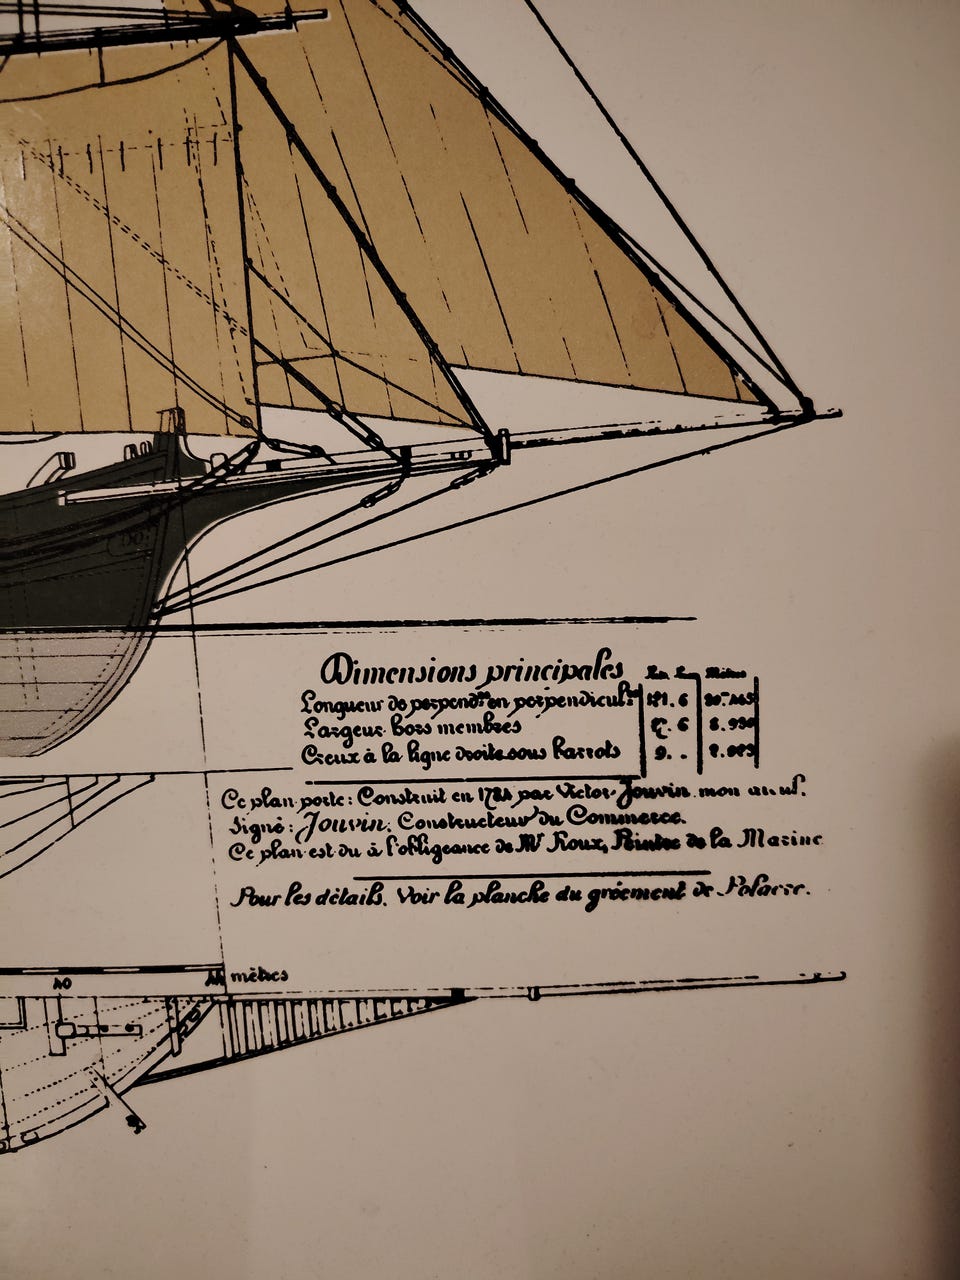 Dimensions principales
Longueur de perpend.re en perpendicul.re 6
Largeur hors membres 6
Creux à la ligne droite sous barrots 9. .
Ce plan porte: Construit en par Victor Jouvin mon
Signé: Jouvin. Constructeur du Commerce.
Ce plan est du à l'obligeance de Mr Roux, Peintre de la Marine
Pour les détails. Voir la planche du gréement de Polacre.
40
mètres